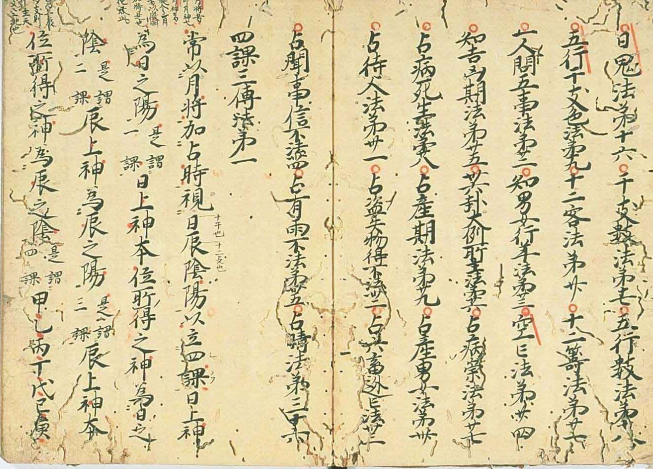 日鬼法第十六 干支数法第十七 五行数法第十八
五行干支色法第十九 十二客法第廿 十二籌法第廿一
一人問五事法第廿二 知男女行年法第廿三 空亡法第廿四
知吉凶期法第廿五 卅六卦大例所主法第廿六 占病祟法第廿七
占病死生法第廿八 占産期法第廿九 占産男女法第卅
占待人法第卅一 占盗失物得不法第卅二 占六畜逃亡法第卅三
占聞事信不法第卅四 占有雨不法第卅五 占晴法第三十六
四課三傳法第一
常以月将加占時視日辰陰陽以立四課日上神
十干也 十二支也
為日之陽 是謂一課 日上神本位所得之神為日之
陰 是謂二課 辰上神為辰之陽 是謂三課 辰上神本
位所得之神為辰之陰 是謂四課 甲乙丙丁戊己庚